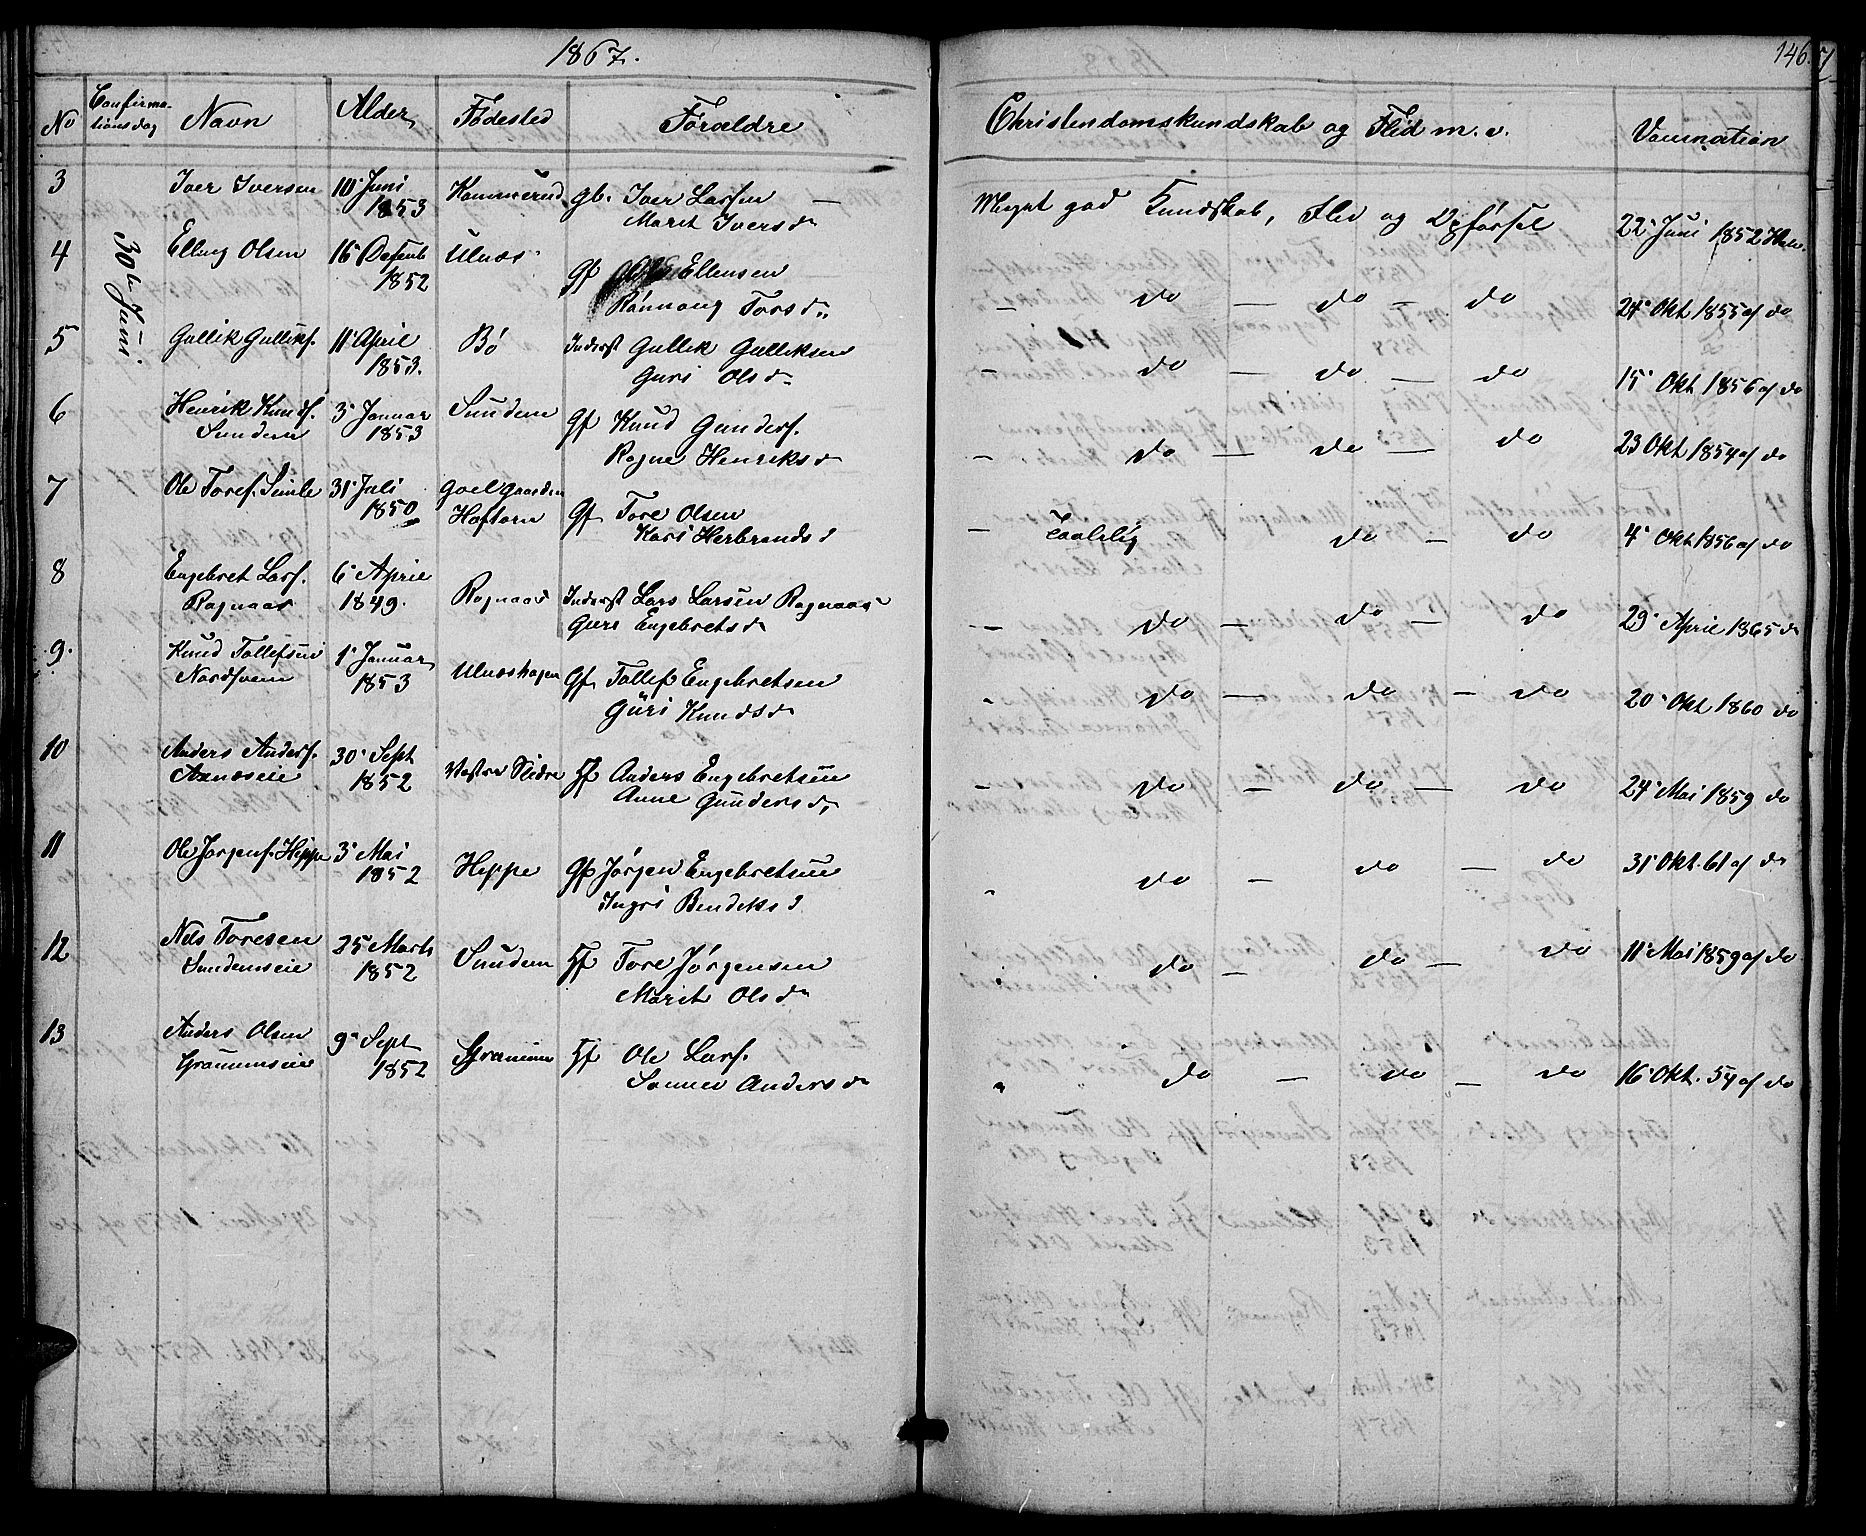 1867.
146.
No Confirma-
tionsdag Navn Alder Fødested Forældre Christendomskundskab og Flid m. v. Vaccination
30te Juni
3 Iver Iversen 10' Juni
1853 gb. Iver Larsen
Marit Iversd.
Meget god Kundskab, Flid og Opførsel 22' Juni 1852
4 Elling Olsen 16 Decemb
1852 Ulnæs Gf Ellensen
Rønnaug Torsd.
do — do — do 24' Okt 1855 af do
5 Gullik Gulliks. 11' April
1853. Bø Inderst Gullik Gulliksen
Guri Olsd.
— do — do — do 15' Okt 1856 af do
6 Henrik Knuds.
Sundem 3' Januar
1853 Sundem Gf Knud Gunders.
Ragne Henriksd
— do — do — do 23 Okt 1854 af do
7 Ole Tores. 31' Juli
1850 Gf Tore Olsen
Kari Herbrandsd
— Taalelig do — do 4' Okt 1856 af do
8 Engebret Lars.
Rognaas 6' April
1849. Rognaas Inderst Lars Larsen Rognaas
Guri Engebretsd.
— do — do — do 29' April 1865 do
9. Knud Tollefsen
Nordsveen 1' Januar
1853 Ulnæshagen Gf Tollef Engebretsen
Guri Knudsd.
do — do — do 20' Okt 1860 do
10 Anders Anders.
30' Sept
1852 Vestre Slidre Hf Anders Engebretsen
Anne Gundersd.
— do — do — do 24' Mai 1859 do
11 Ole Jørgens. Hippe 3' Mai
1852 Hippe Gf Jørgen Engebretsen
Ingri Bendiksd
do — do — do 31' Okt. 61 af do
12 Nils Toresen
Sundemseie 25' Marts
1852 Sundem Hf Tore Jørgensen
Marit Olsd.
do — do — do 11' Mai 1859 af do
13 Anders Olsen
9' Sept
1852 Hf Ole Lars.
Andersd.
do — do — do 16' Okt. 54 af do